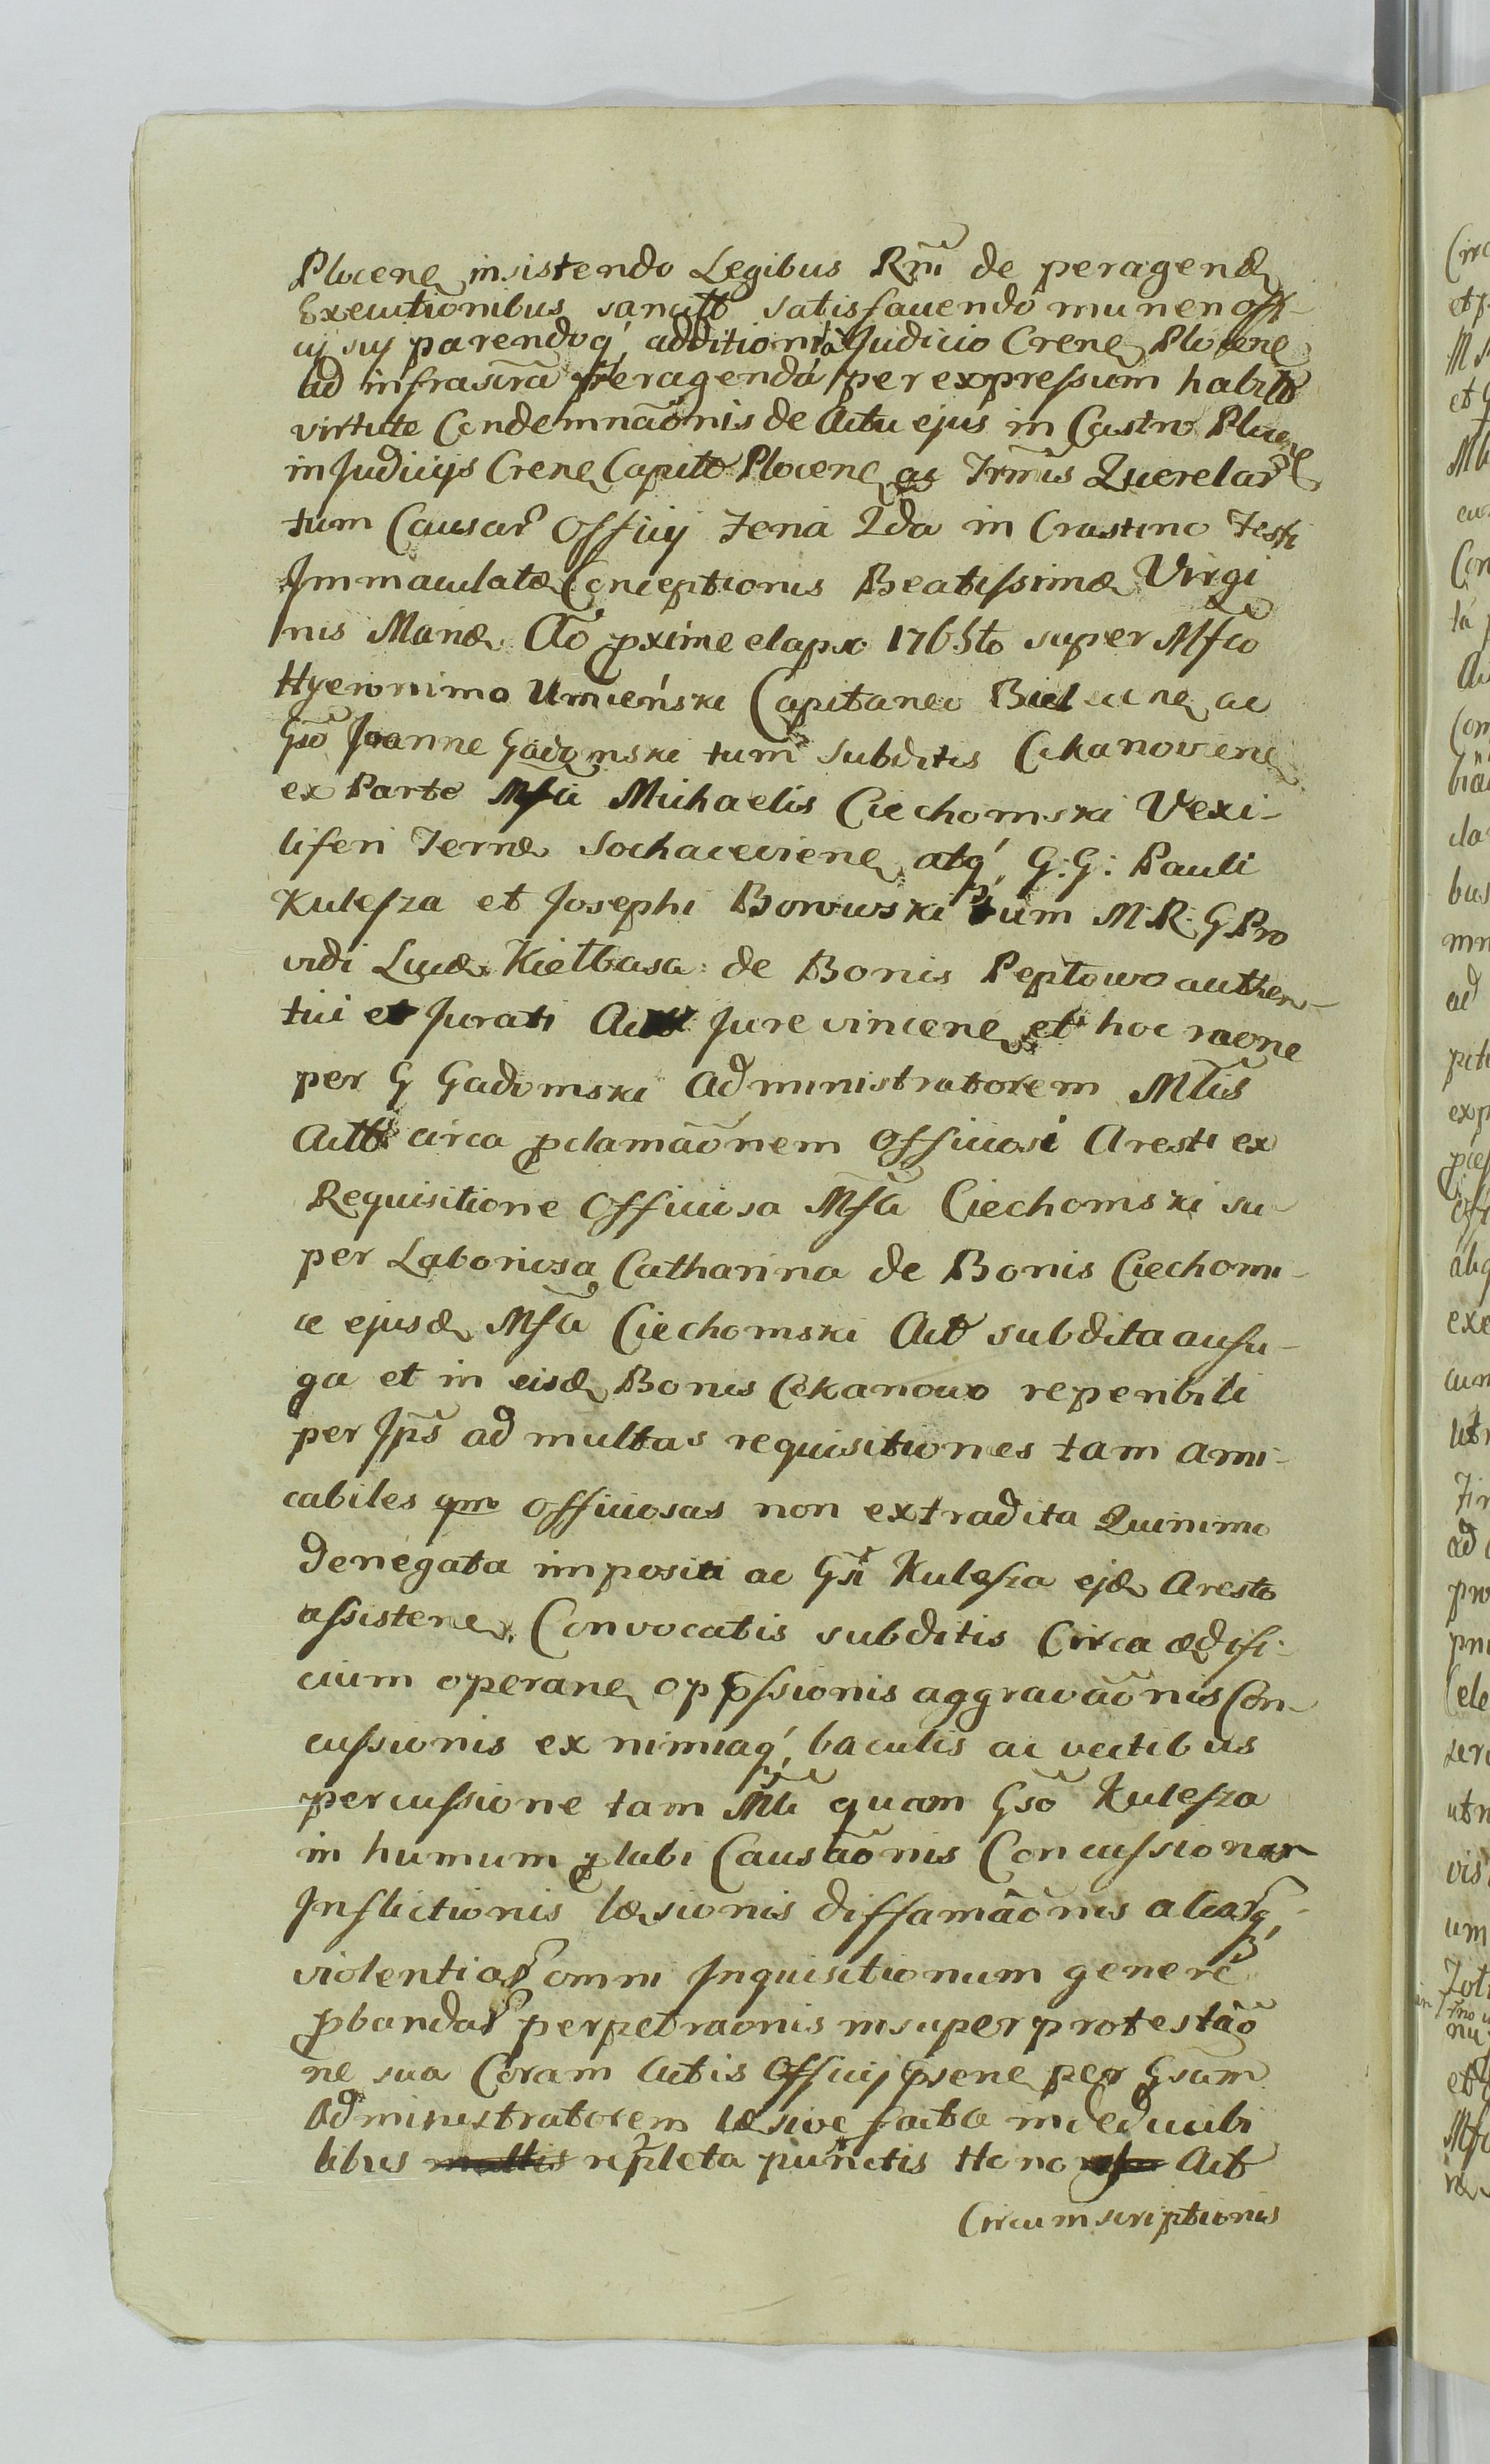 Plocene insistendo Legibus Rñi de peragend
Executionibus sancitt satisfaciendo muneri offi-
cij sij parendoq́ additioni à Judicio Crene Plocene
ad infrascra peragenda per expressum habitt
virtute Condemnãonis de Actu ejus in Castro Plocene
in Judicijs Crene Capitt Plocene ac Trmis Querelar
tum Causar Officij Feria 2da in Crastino Festi
Immaculatæ Conceptionis Beatissimæ Virgi
nis Mariæ Aõ pxime elapso 1765to super Mfco
Hyeronimo Umieński Capitaneo Bielscene ac
Gso Joanne Gadomski tum subditis Cekanoviene
ex Parte Mfci Michaelis Ciechomski Vexi-
liferi Terræ Sochaceviene atq́ G: G: Pauli
Kulesza et Josephi Borowski tum M. R. G Pro
vidi Lucæ Kiełbasa de Bonis Peptowo authen-
tici et Jurati Act Jure vincene et hoc raone
per G Gadomski Administratorem Mttis
Actt circa pclamaõnem Officiosi Aresti ex
Requisitione Officiosa Mfci Ciechomski su
per Laboriosa Catharina de Bonis Ciechomi-
ce ejusd Mfci Ciechomski Act subdita aufu-
ga et in eisd Bonis Cekanowo reperibili
per Jps ad multas requisitiones tam ami-
cabiles qm officiosas non extradita Quinimo
denegata impositi ac Gsi Kulesza ejd Aresto
assistene, Convocatis subditis Circa ædifi-
cium operane oppssionis aggravaõnis Con-
cussionis ex nimiaq́ baculis ac vectibus
percussione tam Mti quam Gso Kulesza
in humum plabi Causaõnis Concussionar
Inflictionis læsionis diffamãonis aliarq́
violentiar omni Inquisitionum genere
pbandar perpetraonis insuper protestaõ
ne sua Coram Actis Officij psene per Gsum
Administratorem læsive facta indeducibi
libus repleta punctis Honor Act
Circumscriptionis